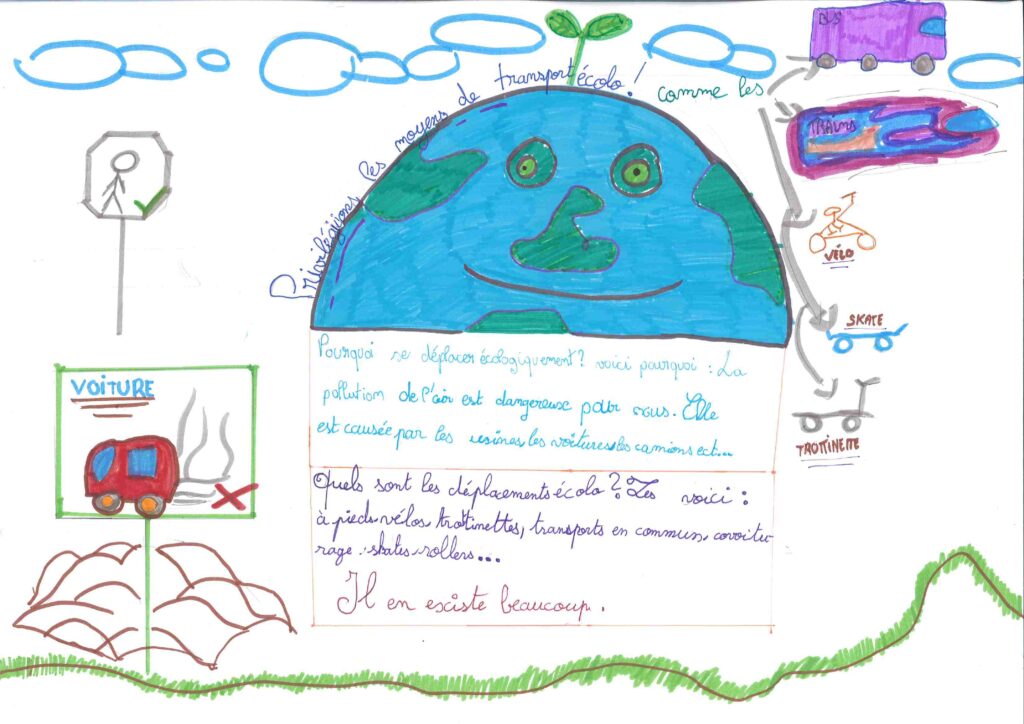 Privilégions les moyens de transport écolo !
comme les
BUS
TRAINS
VÉLO
SKATE
TROTTINETTE
VOITURE
Pourquoi se déplacer écologiquement ? voici pourquoi : La
pollution de l'air est dangereuse pour nous. Elle
est causée par les usines, les voitures, les camions ect...
Quels sont les déplacements écolo ? Les voici :
à pieds, vélos, trottinettes, transports en commun, covoitu-
rage, skates, rollers...
Il en existe beaucoup.